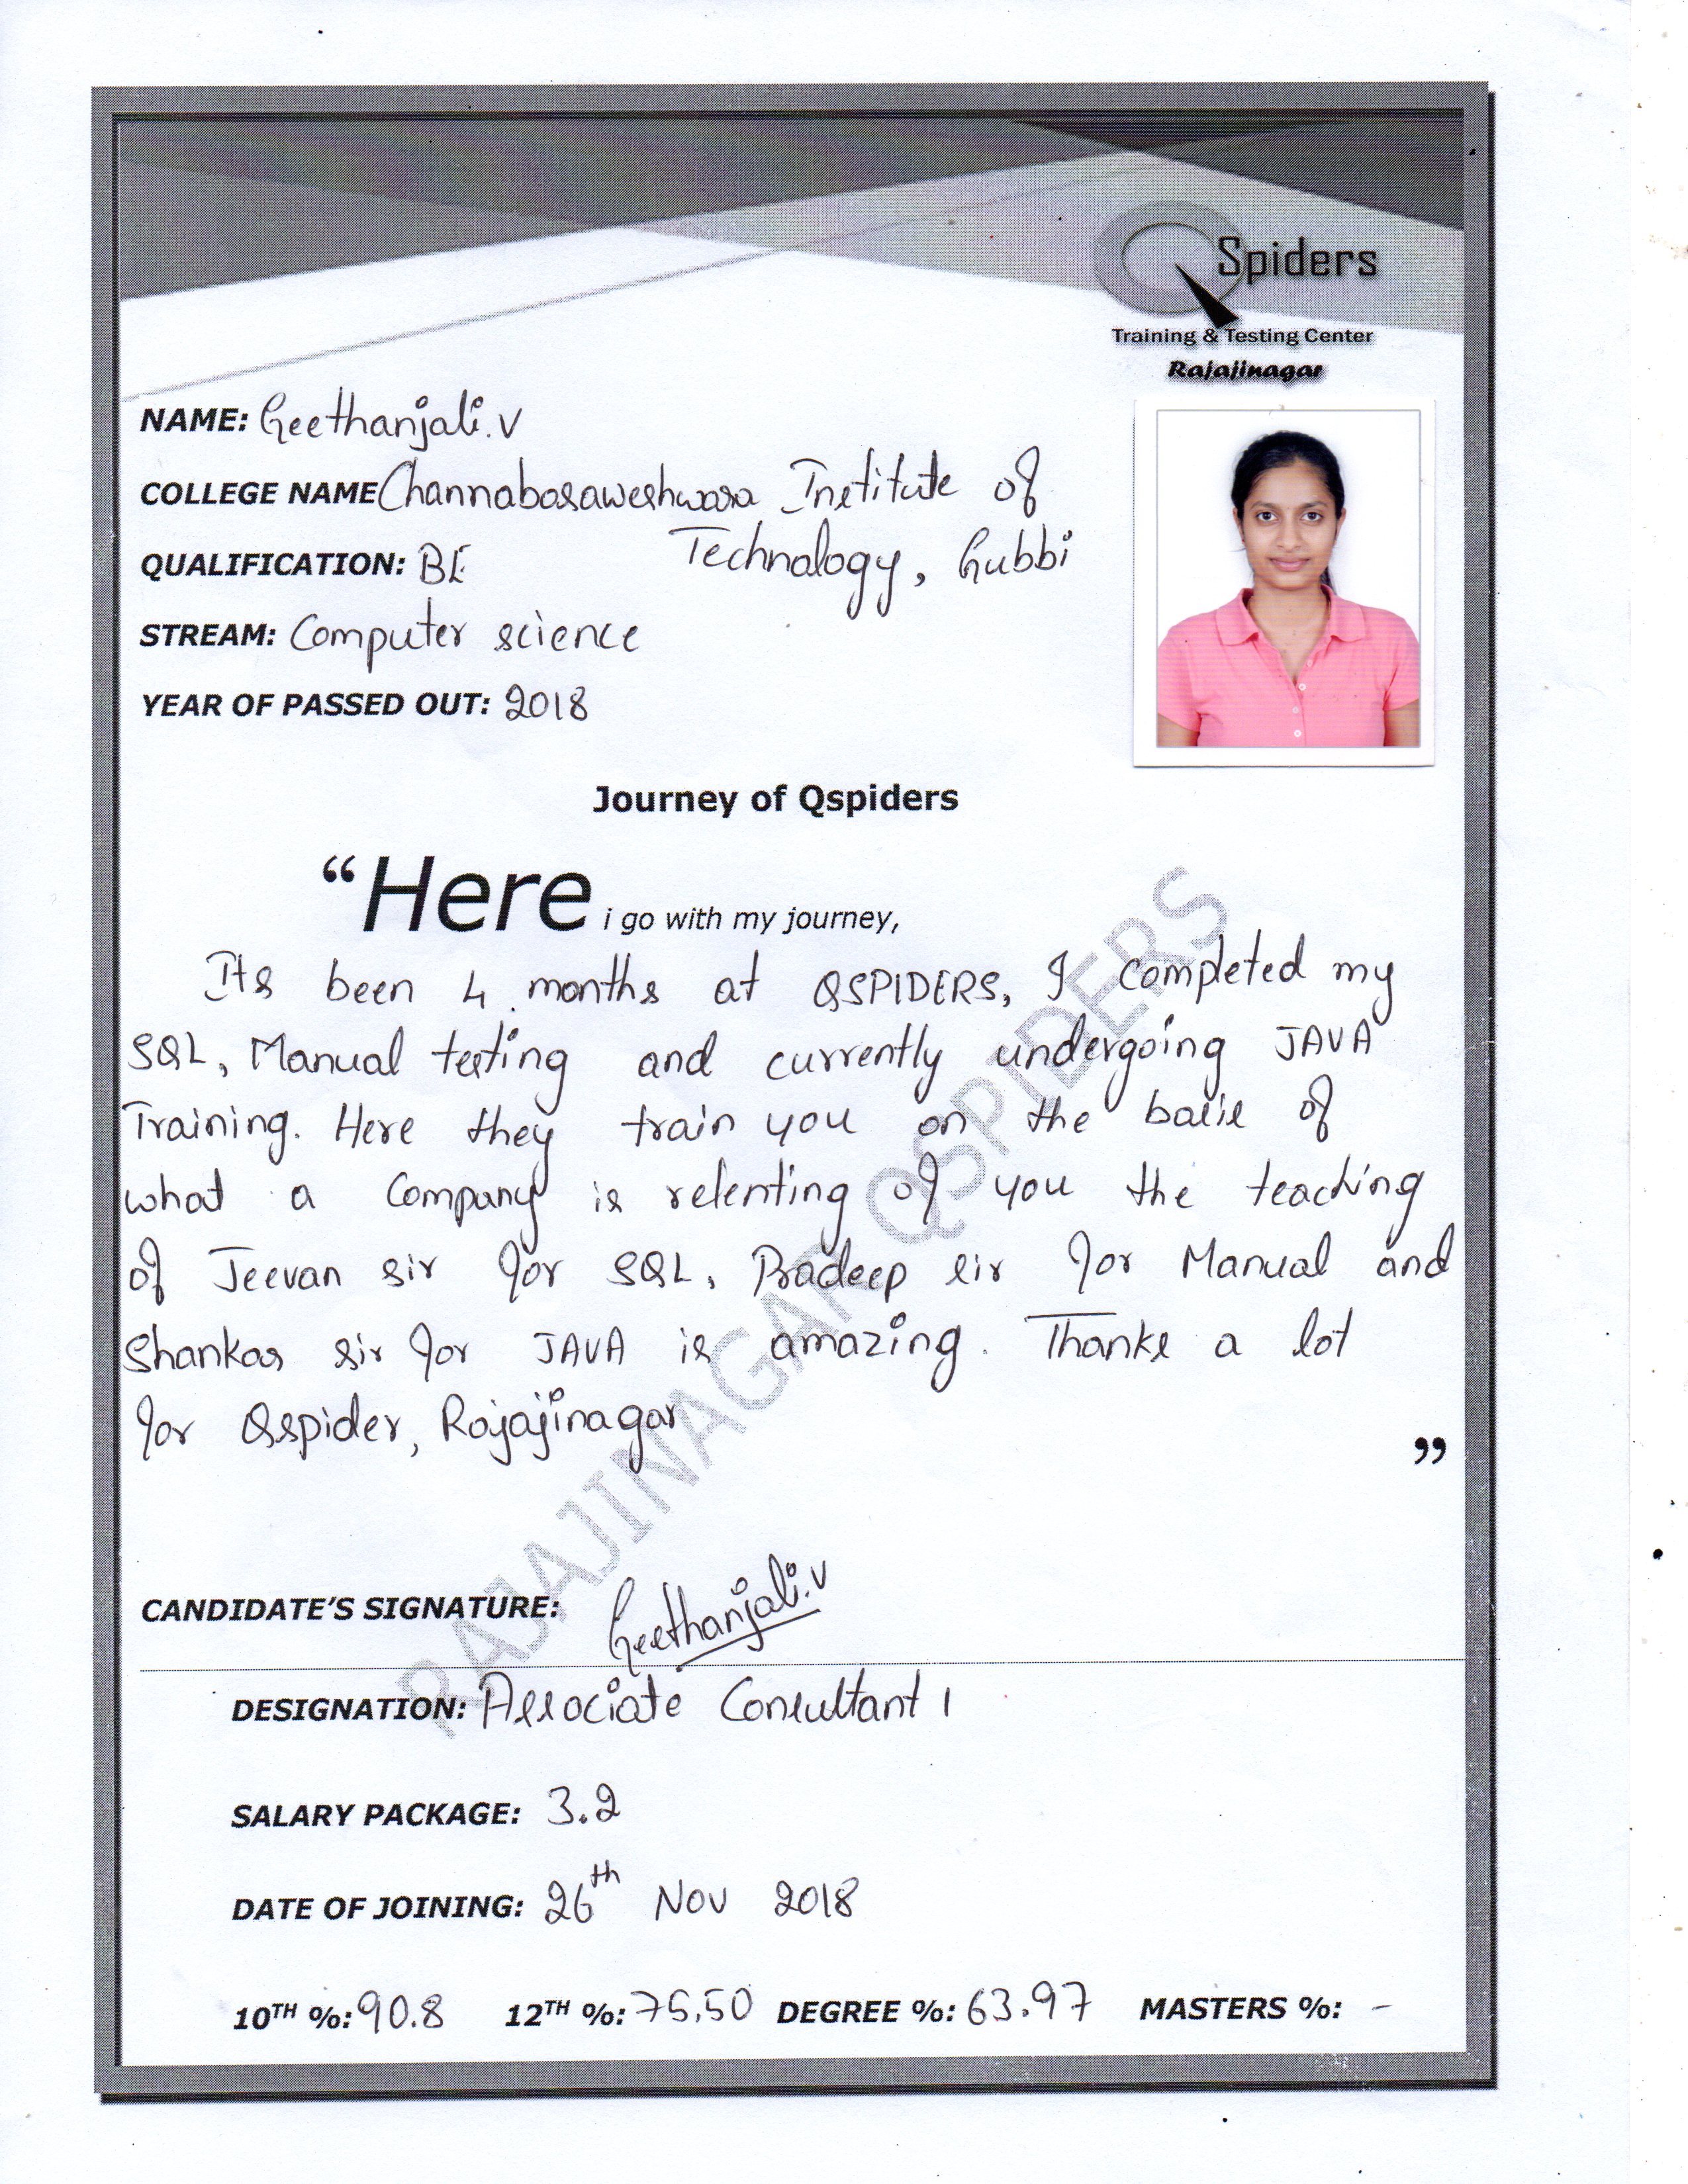 Spiders
Training & Testing Center
Rajajinagar
NAME: Geethanjali.V
COLLEGE NAME Channabasaweshwara Institute of
Technology, Gubbi
QUALIFICATION: BE
STREAM: Computer science
YEAR OF PASSED OUT: 2018
Journey of Qspiders
“Here i go with my journey,
Its been 4 months at QSPIDERS, I completed my
SQL, Manual testing and currently undergoing JAVA
Training. Here they train you on the basis of
what a Company is relenting of you the teaching
of Jeevan sir for SQL, Pradeep sir for Manual and
Shankar sir for JAVA is amazing. Thanks a lot
for Qspider, Rajajinagar
”
RAJAJINAGAR QSPIDERS
CANDIDATE’S SIGNATURE: Geethanjali.V
DESIGNATION: Associate Consultant 1
SALARY PACKAGE: 3.2
DATE OF JOINING: 26th Nov 2018
10TH %: 90.8 12TH %: 75.50 DEGREE %: 63.97 MASTERS %: -